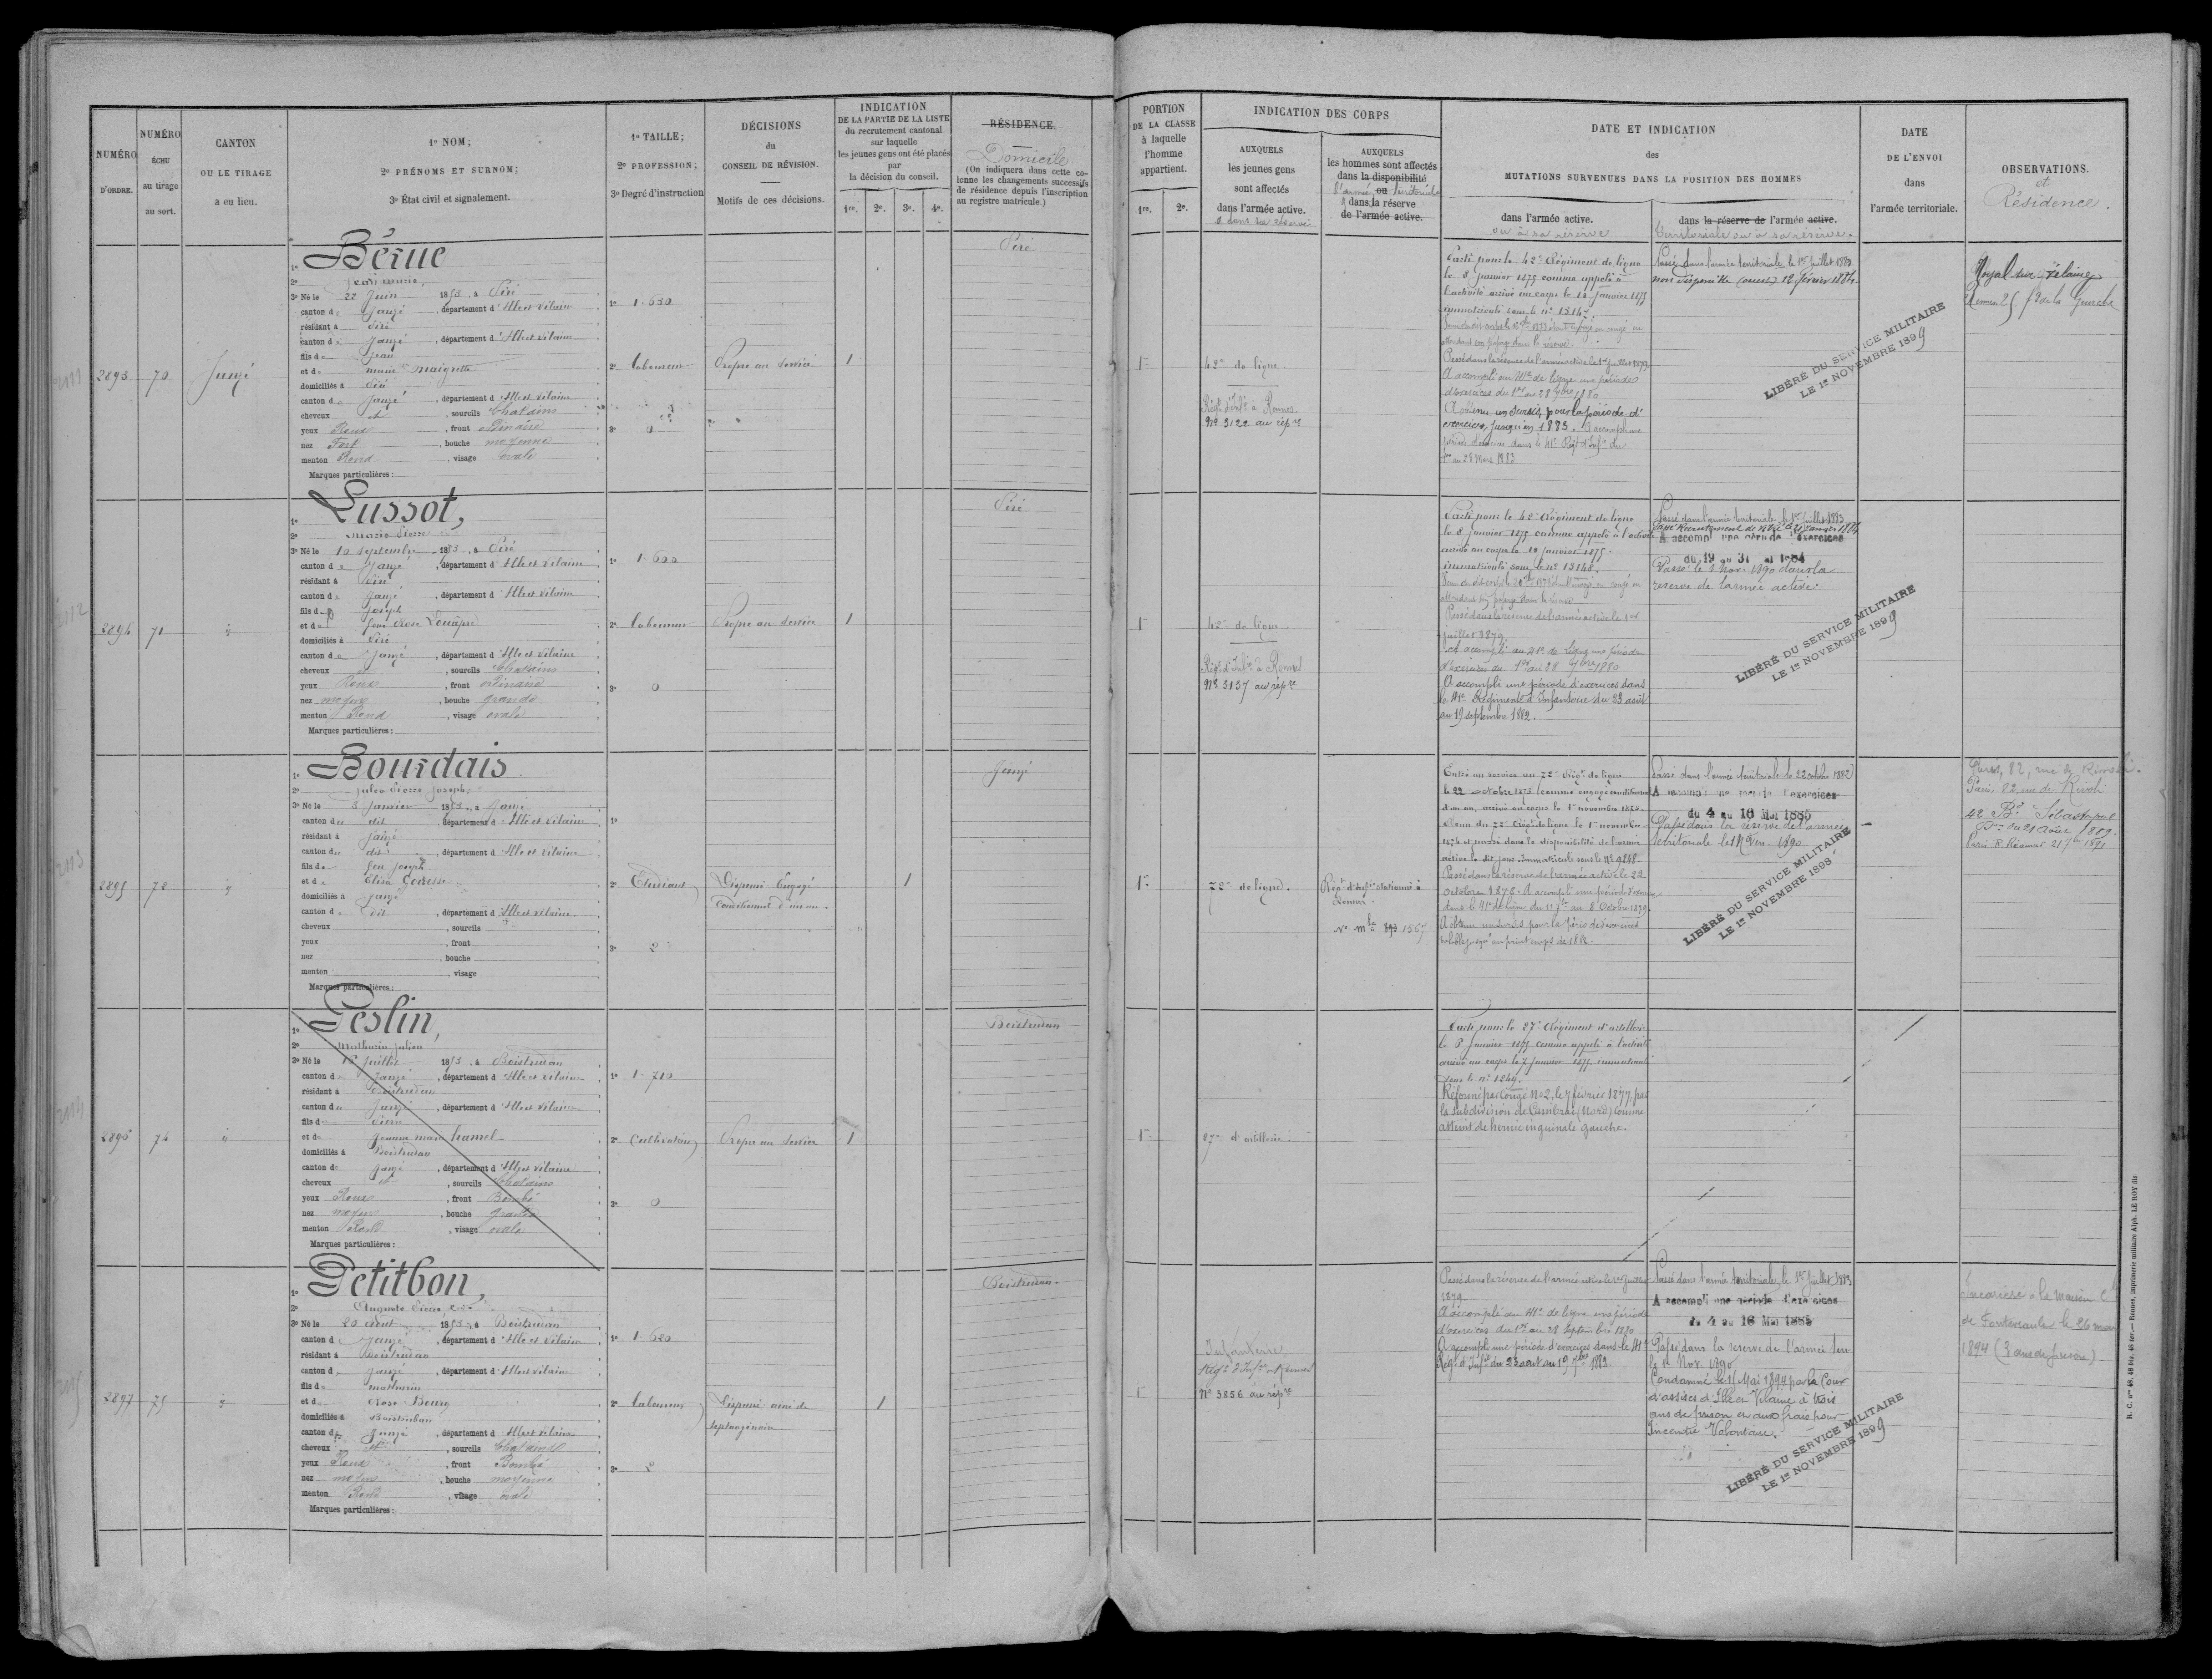 NUMÉRO D'ORDRE.
NUMÉRO ÉCHU au tirage au sort.
CANTON OU LE TIRAGE a eu lieu.
1º NOM;
2º PRÉNOMS ET SURNOM;
3º État civil et signalement.
1º TAILLE;
2º PROFESSION;
3º Degré d'instruction
DÉCISIONS du CONSEIL DE RÉVISION.
Motifs de ces décisions.
INDICATION
DE LA PARTIE DE LA LISTE
du recrutement cantonal
sur laquelle
les jeunes gens ont été placés
par
la décision du conseil.
1re. 2e. 3e. 4e.
RÉSIDENCE.
Domicile
(On indiquera dans cette colonne les changements successifs
de résidence depuis l'inscription
au registre matricule.)
PORTION
DE LA CLASSE
à laquelle
l'homme
appartient.
1re. 2e.
INDICATION DES CORPS
AUXQUELS
les jeunes gens
sont affectés
dans l'armée active.
AUXQUELS
les hommes sont affectés
dans la disponibilité
ou
dans la réserve
de l'armée active.
DATE ET INDICATION
des
MUTATIONS SURVENUES DANS LA POSITION DES HOMMES
dans l'armée active.
ou à sa réserve
dans la réserve de l'armée active.
territoriale ou à sa réserve.
DATE
DE L'ENVOI
dans
l'armée territoriale.
OBSERVATIONS.
et
Résidence.
2893
70
Janzé
1º Bérue
2º Jean marie
3º Né le 22 Juin 1853, à Piré
canton de Janzé, département d'Ille et Vilaine
résidant à Piré
canton de Janzé, département d'Ille et Vilaine
fils de Jean
et de marie Maigrette
domiciliés à Piré
canton de Janzé, département d'Ille et Vilaine
cheveux et, sourcils Chatains
yeux Roux, front ordinaire
nez Fort, bouche moyenne
menton Rond, visage ovale
Marques particulières:
1º 1.630
2º Laboureur
3º 0
Propre au service
1
Piré
42e de ligne
Régt d'Infie à Rennes
Nº 3122 au répre
Parti pour le 42e Régiment de ligne
le 8 Janvier 1875 comme appelé à
l'activité arrivé au corps le 10 Janvier 1875
immatriculé sous le nº 13147
Passé dans la réserve de l'armée active le 1er juillet 1879
A accompli au 41e de ligne une période
d'exercices du 1er au 28 7bre 1880
A obtenu un sursis pour la période d'
exercices jusqu'en 1883. A accompli une
période d'exercices dans le 41e Régt d'Infie du
1er au 28 Mars 1883
Passé dans l'armée territoriale le 1er Juillet 1883
LIBÉRÉ DU SERVICE MILITAIRE
LE 1er NOVEMBRE 1899
Noyal sur Vilaine
Rennes 25 fg de la Guerche
2894
71
1º Lussot,
2º Marie Pierre
3º Né le 10 septembre 1853, à Piré
canton de Janzé, département d'Ille et Vilaine
résidant à Piré
canton de Janzé, département d'Ille et Vilaine
fils de Joseph
et de feue Rose
domiciliés à Piré
canton de Janzé, département d'Ille et Vilaine
cheveux et, sourcils Chatains
yeux Roux, front ordinaire
nez moyen, bouche grande
menton Rond, visage ovale
Marques particulières:
1º 1.600
2º Laboureur
3º 0
Propre au service
1
Piré
42e de ligne.
Régt d'Infie à Rennes
Nº 3137 au répre
Parti pour le 42e Régiment de ligne
le 8 Janvier 1875 comme appelé à l'activité
arrivé au corps le 10 Janvier 1875.
immatriculé sous le nº 13140.
Passé dans la réserve de l'armée active le 1er
juillet 1879.
a accompli au 41e de ligne une période
d'exercices du 1er au 28 7bre 1880
A accompli une période d'exercices dans
le 41e Régiment d'Infanterie du 23 août
au 19 septembre 1882.
Passé dans l'armée territoriale le 1er Juillet 1883
A accompli une période d'exercices
du 19 au 31 1884
Passé le 1 Nov. 1890 dans la
reserve de l'armée active.
LIBÉRÉ DU SERVICE MILITAIRE
LE 1er NOVEMBRE 1899
2895
72
1º Bourdais
2º Jules Pierre Joseph
3º Né le 5 Janvier 1853, à Janzé
canton du dit, département d'Ille et Vilaine
résidant à Janzé
canton du dit, département d'Ille et Vilaine
fils de feu Joseph
et de Elisa
domiciliés à Janzé
canton du dit, département d'Ille et Vilaine
cheveux, sourcils
yeux, front
nez, bouche
menton, visage
Marques particulières:
1º
2º Etudiant
3º 2
Dispensé Engagé
Conditionnel d'un an.
1
Janzé
72e de ligne.
Régt d'Infie stationné à
Rennes.
Nº mle 893 1567
Entré au service au 72e Régt de ligne
le 22 octobre 1873 (comme engagé conditionnel
d'un an, arrivé au corps le 1er novembre 1873.
Passé dans la réserve de l'armée active le 22
octobre 1878. A accompli une période d'exercices
dans le 41e de ligne du 11 7bre au 8 Octobre 1879.
Passé dans l'armée territoriale le 22 octobre 1882
A accompli une période d'exercices
du 4 au 16 Mai 1885
Passé dans la réserve de l'armée
Territoriale le 1 Nov. 1890
LIBÉRÉ DU SERVICE MILITAIRE
LE 1er NOVEMBRE 1898
Paris, 82, rue de Rivoli.
Paris 82 rue de Rivoli
42 Bd Sébastopol
Don du 21 Août 1889.
Paris R. Réaumur 21
2896
74
1º Geslin,
2º Mathurin Julien
3º Né le 16 Juillet 1853, à Boistrudan
canton de Janzé, département d'Ille et Vilaine
résidant à Boistrudan
canton de Janzé, département d'Ille et Vilaine
fils de Pierre
et de Jeanne marie hamel
domiciliés à Boistrudan
canton de Janzé, département d'Ille et Vilaine
cheveux et, sourcils Chatains
yeux Roux, front Bombé
nez moyen, bouche grande
menton Rond, visage ovale
Marques particulières:
1º 1.710
2º Cultivateur
3º 0
Propre au service
1
Boistrudan
27e d'artillerie.
Parti pour le 27e Régiment d'artillerie
le 5 Janvier 1875 comme appelé à l'activité
arrivé au corps le 7 Janvier 1875. immatriculé
sous le nº 1249.
Réformé par Congé No 2, le 7 février 1877, par
la Subdivision de Cambrai (Nord) comme
atteint de hernie inguinale gauche.
2897
75
1º Petitbon,
2º Auguste Pierre
3º Né le 20 aout 1853, à Boistrudan
canton de Janzé, département d'Ille et Vilaine
résidant à Boistrudan
canton de Janzé, département d'Ille et Vilaine
fils de Mathurin
et de Rose Bourg
domiciliés à Boistrudan
canton de Janzé, département d'Ille et Vilaine
cheveux et, sourcils Chatains
yeux Roux, front Bombé
nez moyen, bouche moyenne
menton Rond, visage ovale
Marques particulières:
1º 1.620
2º Laboureur
3º 2
Dispensé ainé de
septuagénaire
1
Boistrudan.
Infanterie
Régt d'Infie à Rennes
Nº 3856 au répre
Passé dans la réserve de l'armée active le 1er juillet
1879.
A accompli au 41e de ligne une période
d'exercices du 1er au 28 Septembre 1880
A accompli une période d'exercices dans le 41e
Régt d'Infie du 23 aout au 19 7bre 1882.
Passé dans l'armée territoriale le 1er Juillet 1883
A accompli une période d'exercices
du 4 au 16 Mai 1885
Passé dans la reserve de l'armée terr
le 1er Nov. 1890
Condamné le 15 Mai 1894 par la Cour
d'assises d'Ille et Vilaine à trois
ans de prison et aux frais pour
Incendie Volontaire.
LIBÉRÉ DU SERVICE MILITAIRE
LE 1er NOVEMBRE 1899
Incarcéré à la maison Cle
de Fontevrault le 26 mai
1894 (3 ans de prison)
R. C. nos 48, 48 bis, 48 ter.— Rennes, imprimerie militaire Alph. LE ROY fils